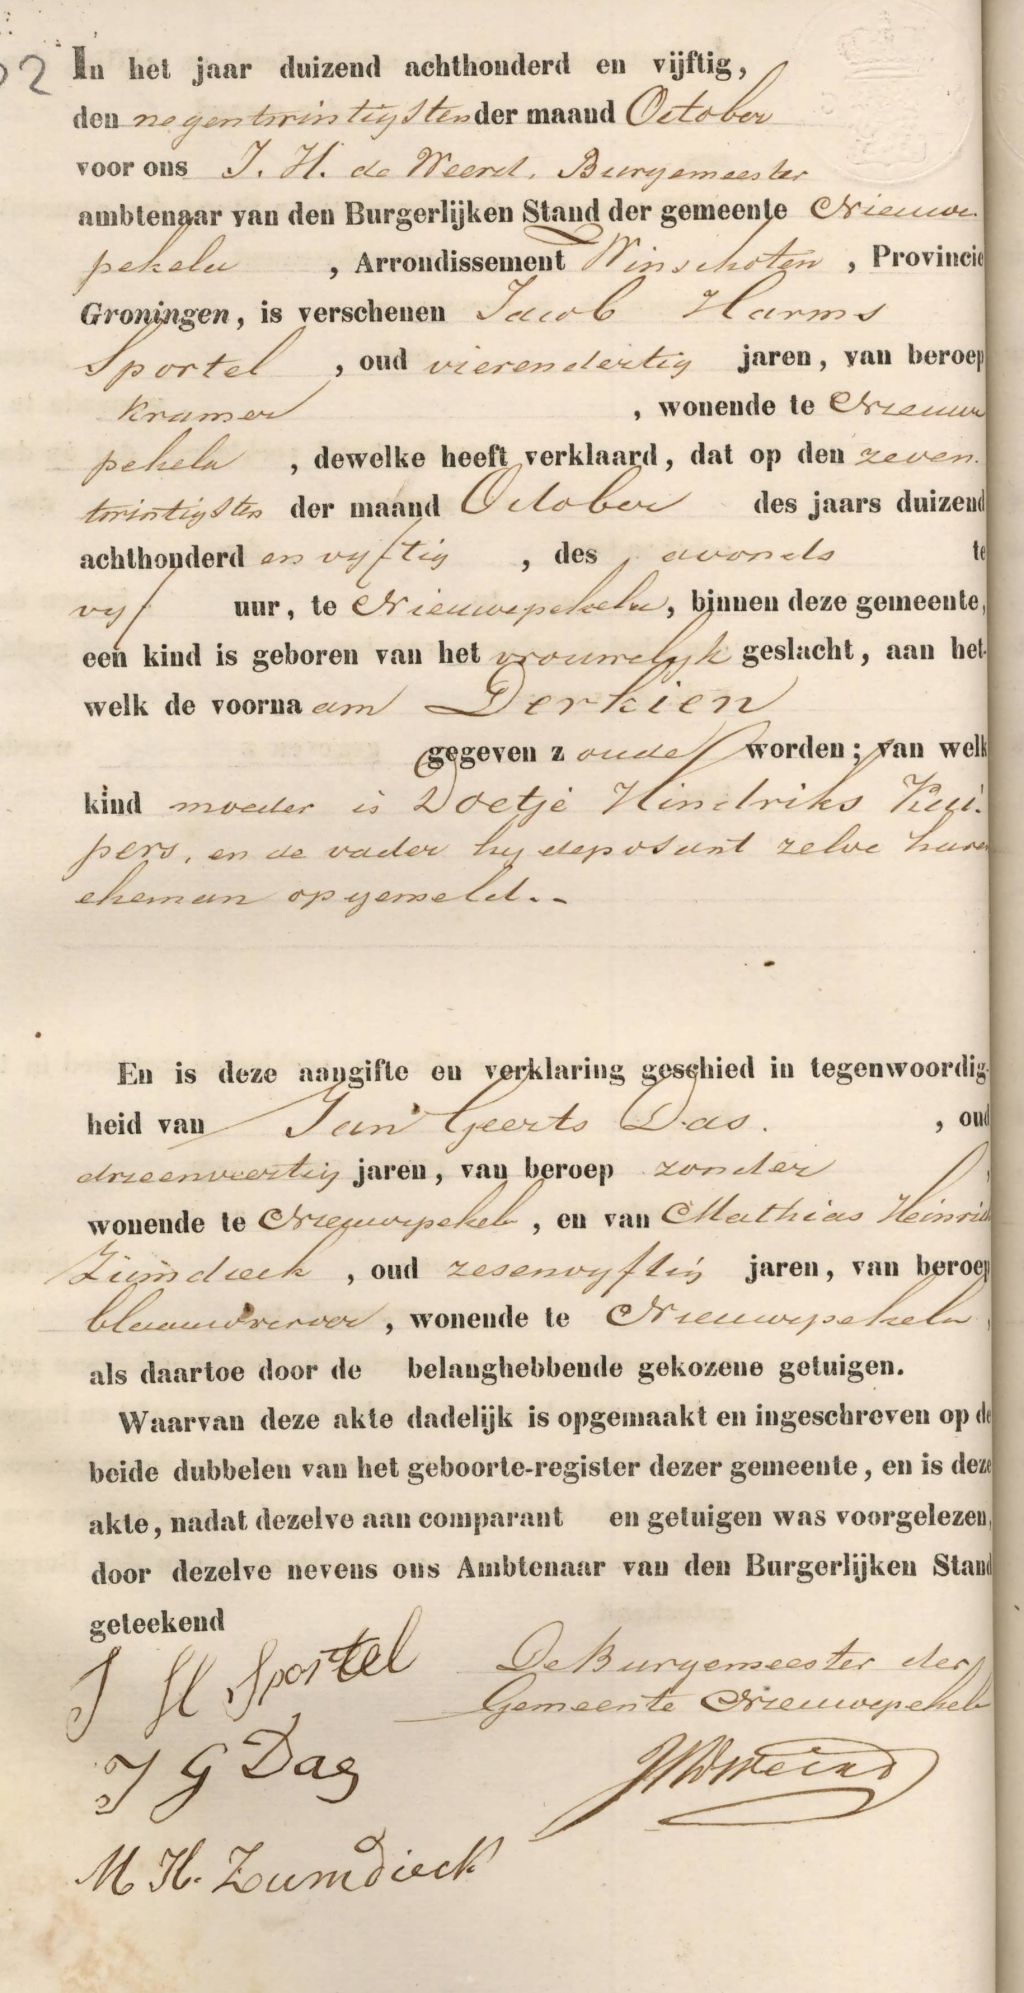 02
In het jaar duizend achthonderd en vijftig,
den negentwintigsten der maand October
voor ons J. H. de Weerd, Burgemeester
ambtenaar van den Burgerlijken Stand der gemeente Nieuwe
pekela , Arrondissement Winschoten , Provincie
Groningen, is verschenen Jacob Harms
Sportel , oud vierendertig jaren, van beroep
kramer , wonende te Nieuwe
pekela , dewelke heeft verklaard, dat op den zeven
twintigsten der maand October des jaars duizend
achthonderd en vyftig , des avonds te
vyf uur, te Nieuwepekela, binnen deze gemeente,
een kind is geboren van het vrouwelyk geslacht, aan het-
welk de voornaam Derkien
gegeven zoude worden; van welk
kind moeder is Doetje Hindriks Kui-
pers, en de vader hy deposant zelve haren
eheman opgemeld.-
En is deze aangifte en verklaring geschied in tegenwoordig-
heid van Jan Geerts Das. , oud
drieenveertig jaren, van beroep zonder ,
wonende te Nieuwepekela , en van Mathias Heinrich
Zumdieck , oud zesenvyftig jaren, van beroep
blaauwverver , wonende te Nieuwepekela ,
als daartoe door de belanghebbende gekozene getuigen.
Waarvan deze akte dadelijk is opgemaakt en ingeschreven op de
beide dubbelen van het geboorte-register dezer gemeente, en is deze
akte, nadat dezelve aan comparant en getuigen was voorgelezen,
door dezelve nevens ons Ambtenaar van den Burgerlijken Stand
geteekend
J H Sportel
De Burgemeester der
Gemeente Nieuwepekela
J G Das
JHDWeerd
M H. Zumdieck